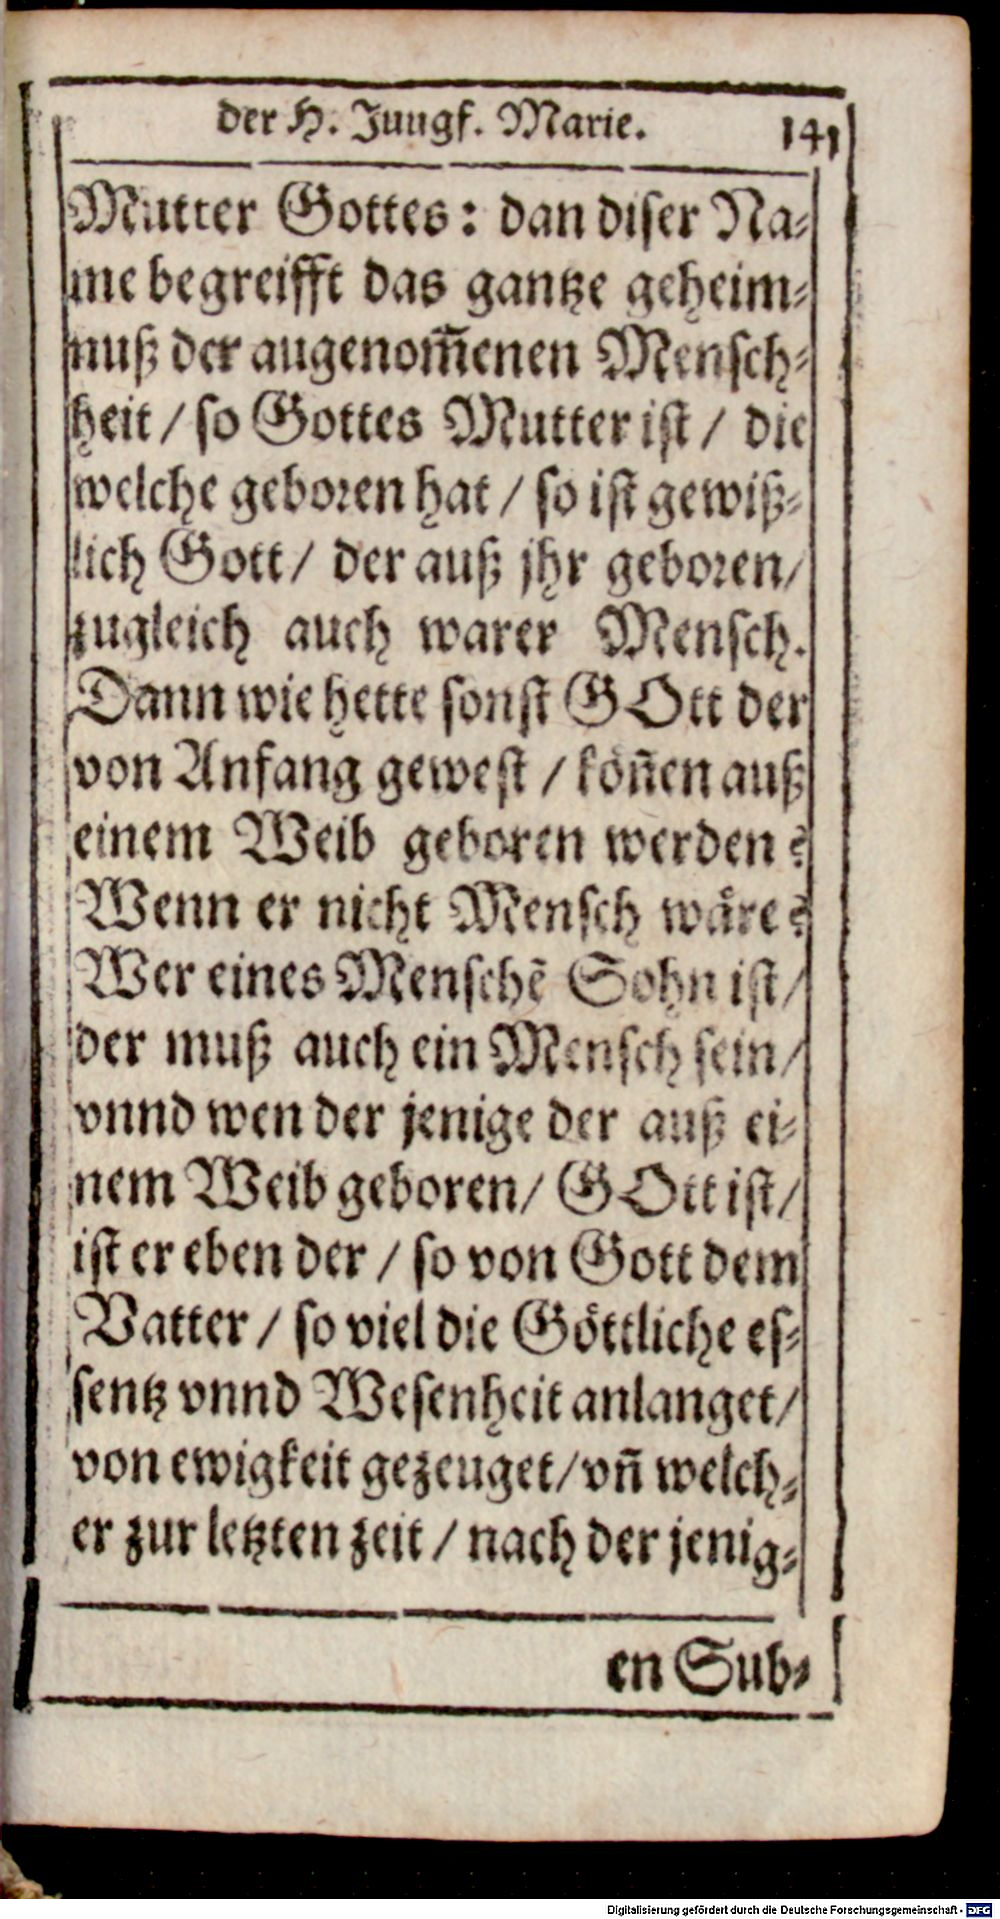 der H. Jungf. Marie. 141
Mutter Gottes: dan diser Na-
me begreifft das gantze geheim-
nuß der augenom̃enen Mensch-
heit / so Gottes Mutter ist / die
welche geboren hat / so ist gewiß-
lich Gott / der auß jhr geboren /
zugleich auch warer Mensch.
Dann wie hette sonst GOtt der
von Anfang gewest / köñen auß
einem Weib geboren werden?
Wenn er nicht Mensch wäre?
Wer eines Menschẽ Sohn ist /
der muß auch ein Mensch sein /
vnnd wen der jenige der auß ei-
nem Weib geboren / GOtt ist /
ist er eben der / so von Gott dem
Vatter / so viel die Göttliche es-
sentz vnnd Wesenheit anlanget /
von ewigkeit gezeuget / vñ welch-
er zur letzten zeit / nach der jenig-
en Sub-
Digitalisierung gefördert durch die Deutsche Forschungsgemeinschaft - DFG